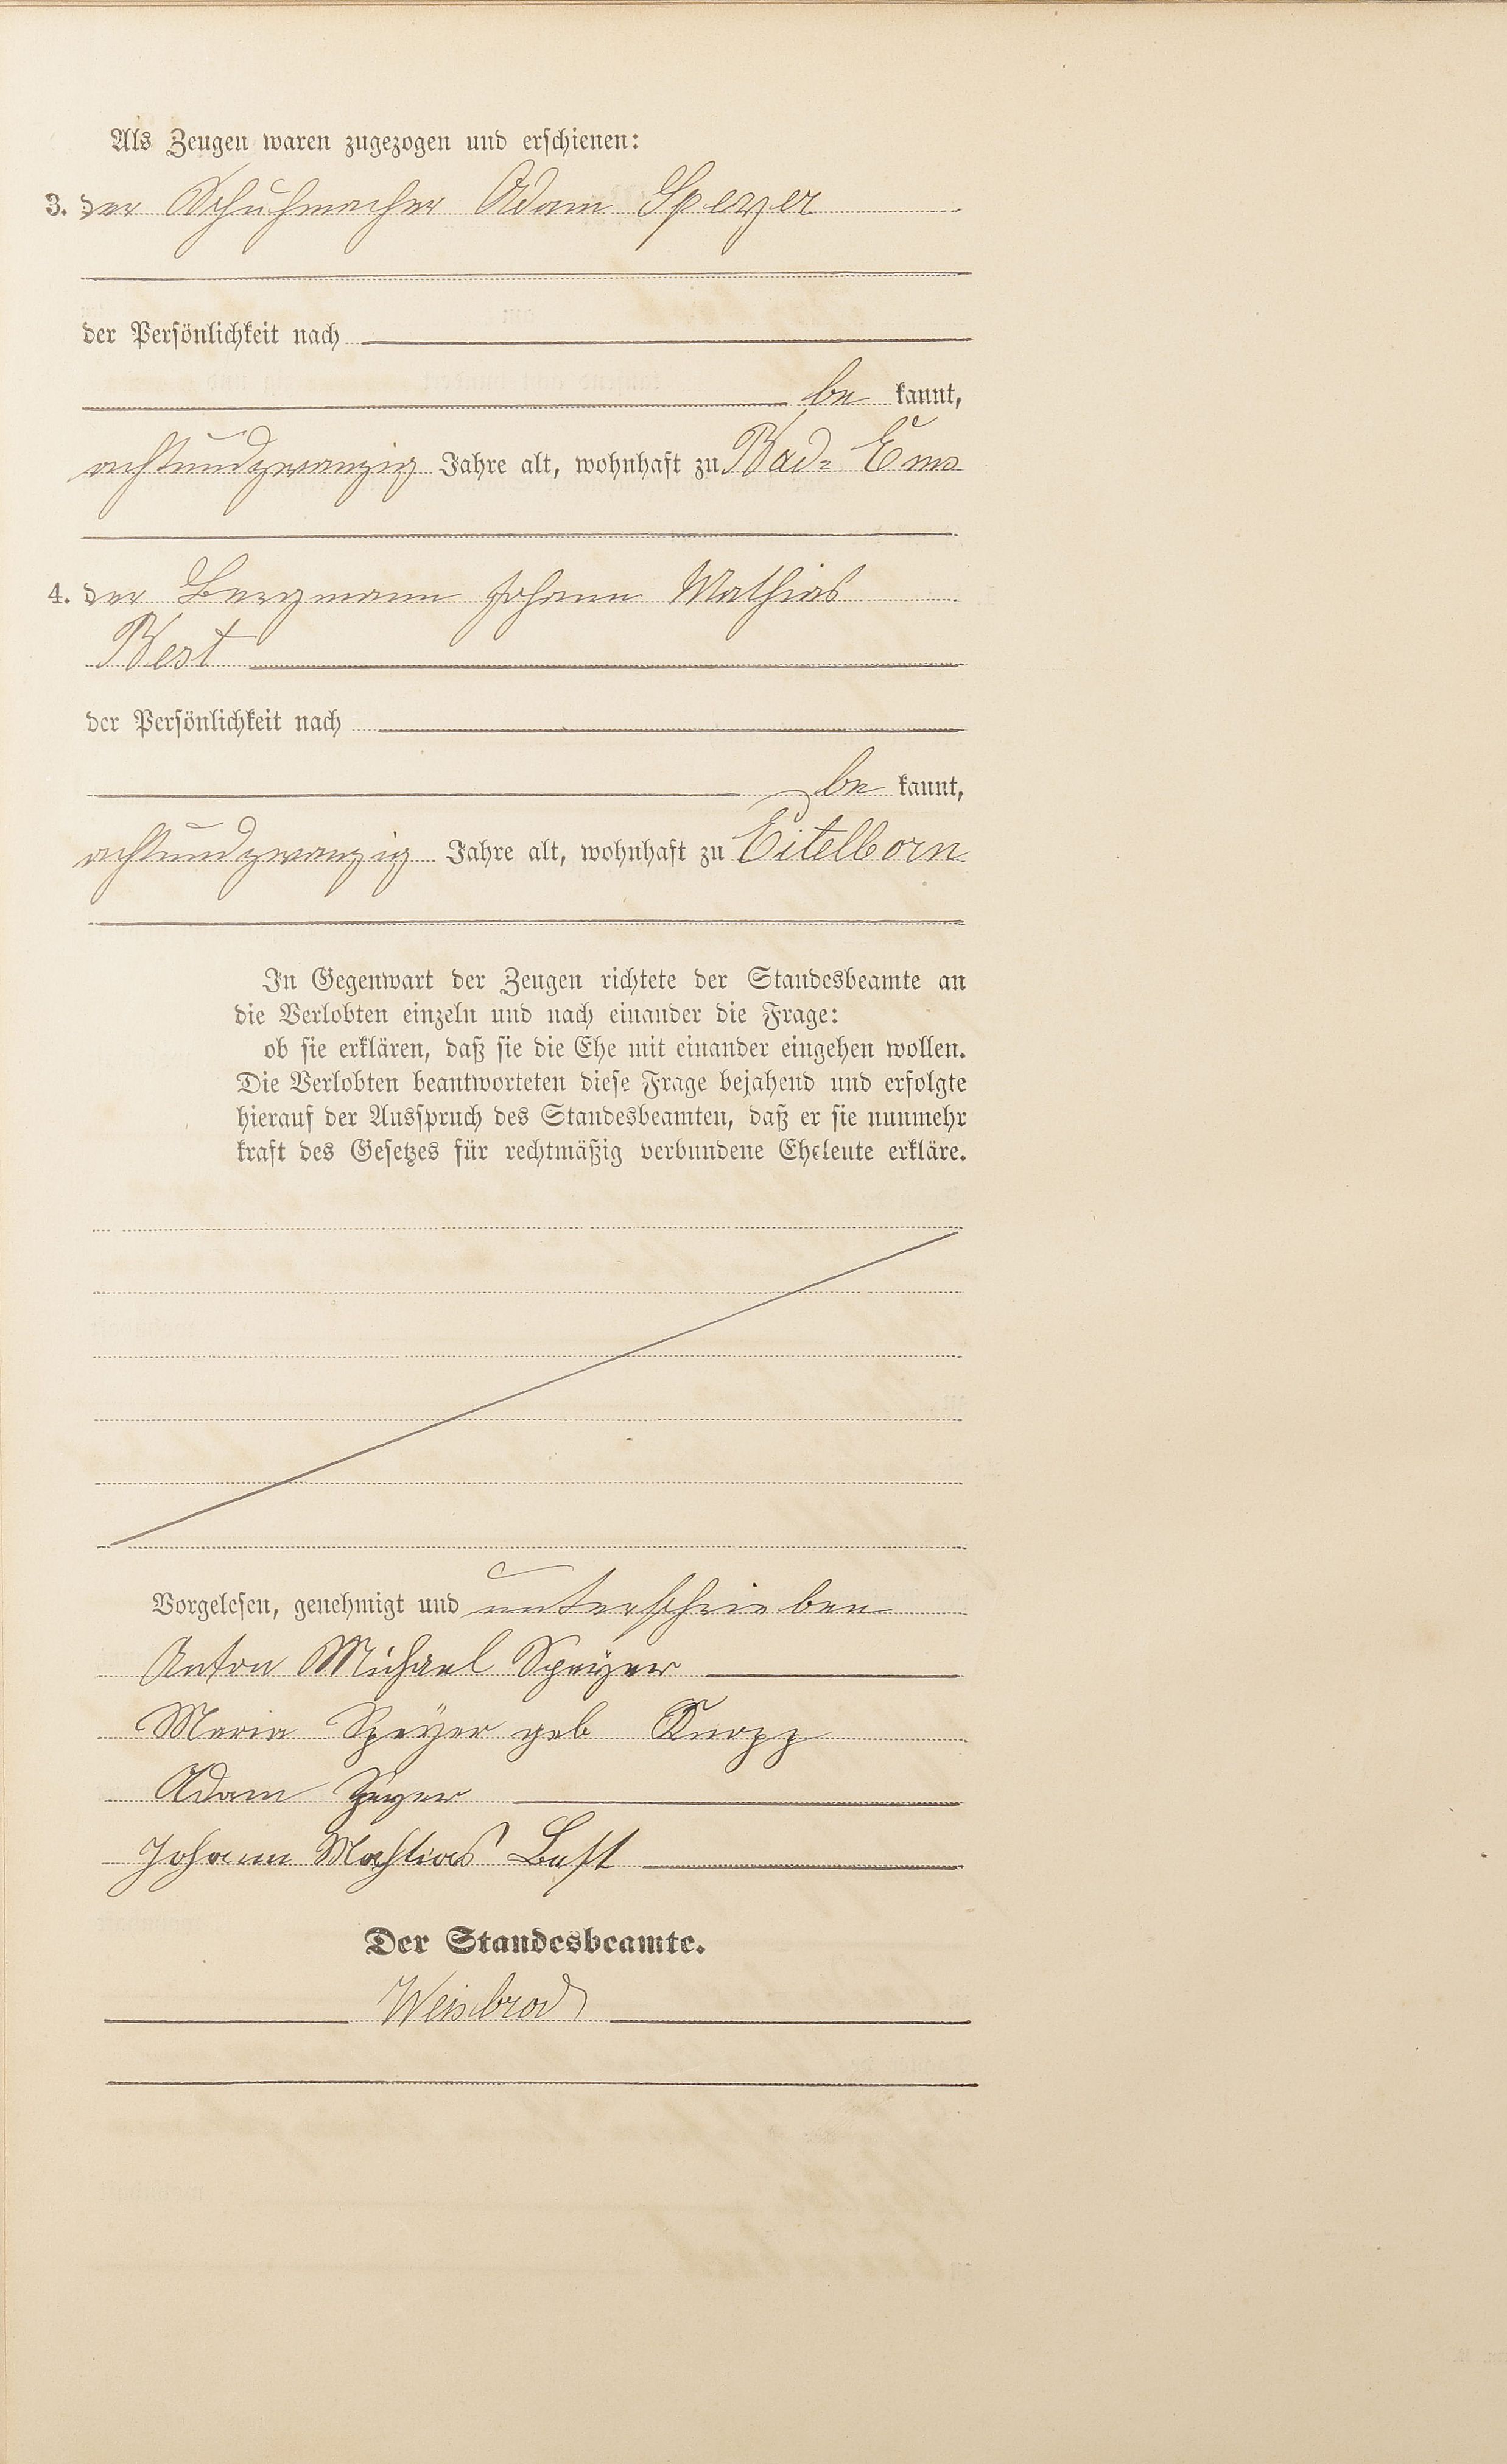 Als Zeugen waren zugezogen und erschienen:
3. der Schuhmacher Adam Speyer
der Persönlichkeit nach
be kannt,
achtundzwanzig Jahre alt, wohnhaft zu Bad=Ems
4. der Bergmann Johann Mathias
Best
der Persönlichkeit nach
be kannt,
achtundzwanzig Jahre alt, wohnhaft zu Eitelborn
In Gegenwart der Zeugen richtete der Standesbeamte an
die Verlobten einzeln und nach einander die Frage:
ob sie erklären, daß sie die Ehe mit einander eingehen wollen.
Die Verlobten beantworteten diese Frage bejahend und erfolgte
hierauf der Ausspruch des Standesbeamten, daß er sie nunmehr
kraft des Gesetzes für rechtmäßig verbundene Eheleute erkläre.
Vorgelesen, genehmigt und unterschrieben
Anton Michael Speÿer
Maria Speÿer geb Knopp
Adam Speyer
Johann Mathias Best
Der Standesbeamte.
Weisbrod